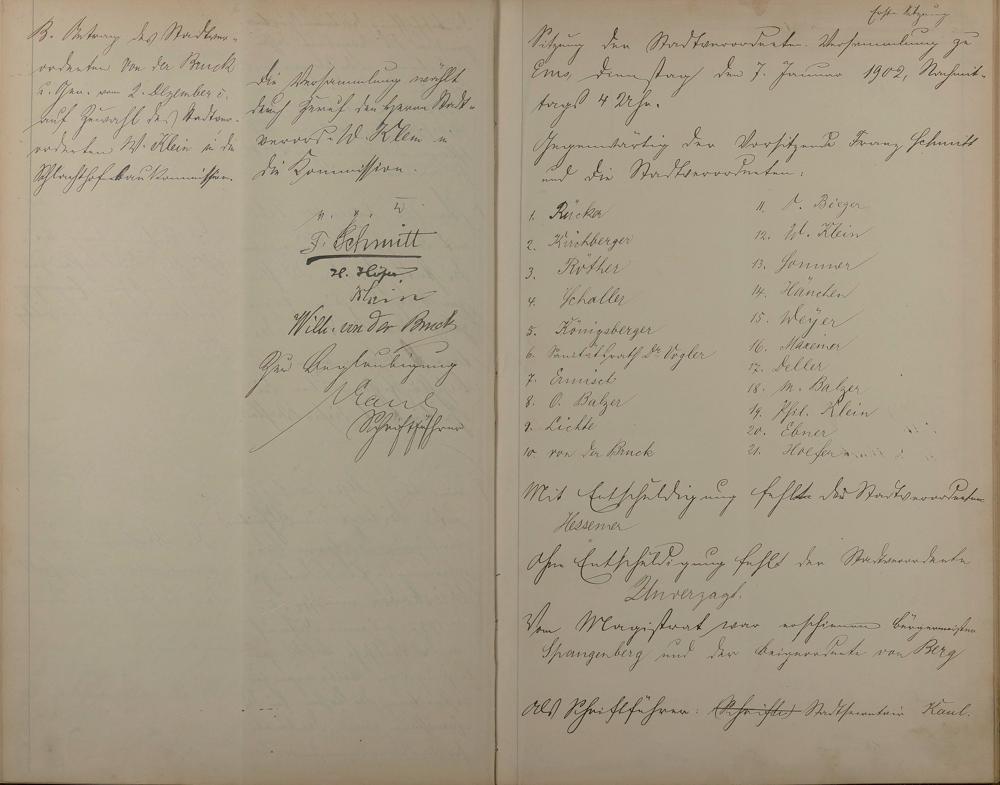 B. Antrag des Stadtver-
ordneten von der Bruck
u. Gen. vom 2. Dezember v.
auf Zuwahl des Stadtver-
ordneten W. Klein in die
Schlachthofbau Kommission.
Die Versammlung wählt
durch Zuruf den Herrn Stadt-
verord. W. Klein in
die Kommission.
v. g. u.
F. Schmitt
H. Höfer
Klein
Wilh. von der Bruck
Zur Beglaubigung
Kaul
Schriftführer
Erste Sitzung
Sitzung der Stadtverordneten-Versammlung zu
Ems, Dienstag den 7. Januar 1902, Nachmit-
tags 4 Uhr.
Gegenwärtig der Vorsitzende Franz Schmitt
und die Stadtverordneten:
1. Rücker
2. Kirchberger
3. Röther
4. Schaller
5. Königsberger
6. Sanitätsrath Dr Vogler
7. Ermisch
8. O. Balzer
9. Lichte
10. von der Bruck
11. Bieger
12. W. Klein
13. Sommer
14. Hänchen
15. Weyer
16. Maxeiner
17. Deller
18. M. Balzer
19. Phil. Klein
20. Ebner
21. Hoefer
Mit Entschuldigung fehlt der Stadtverordnete
Hessemer
Ohne Entschuldigung fehlt der Stadtverordnete
Unverzagt.
Vom Magistrat war erschienen Bürgermeister
Spangenberg und der Beigeordnete von Berg
Als Schriftführer: Stadtsecretair Kaul.